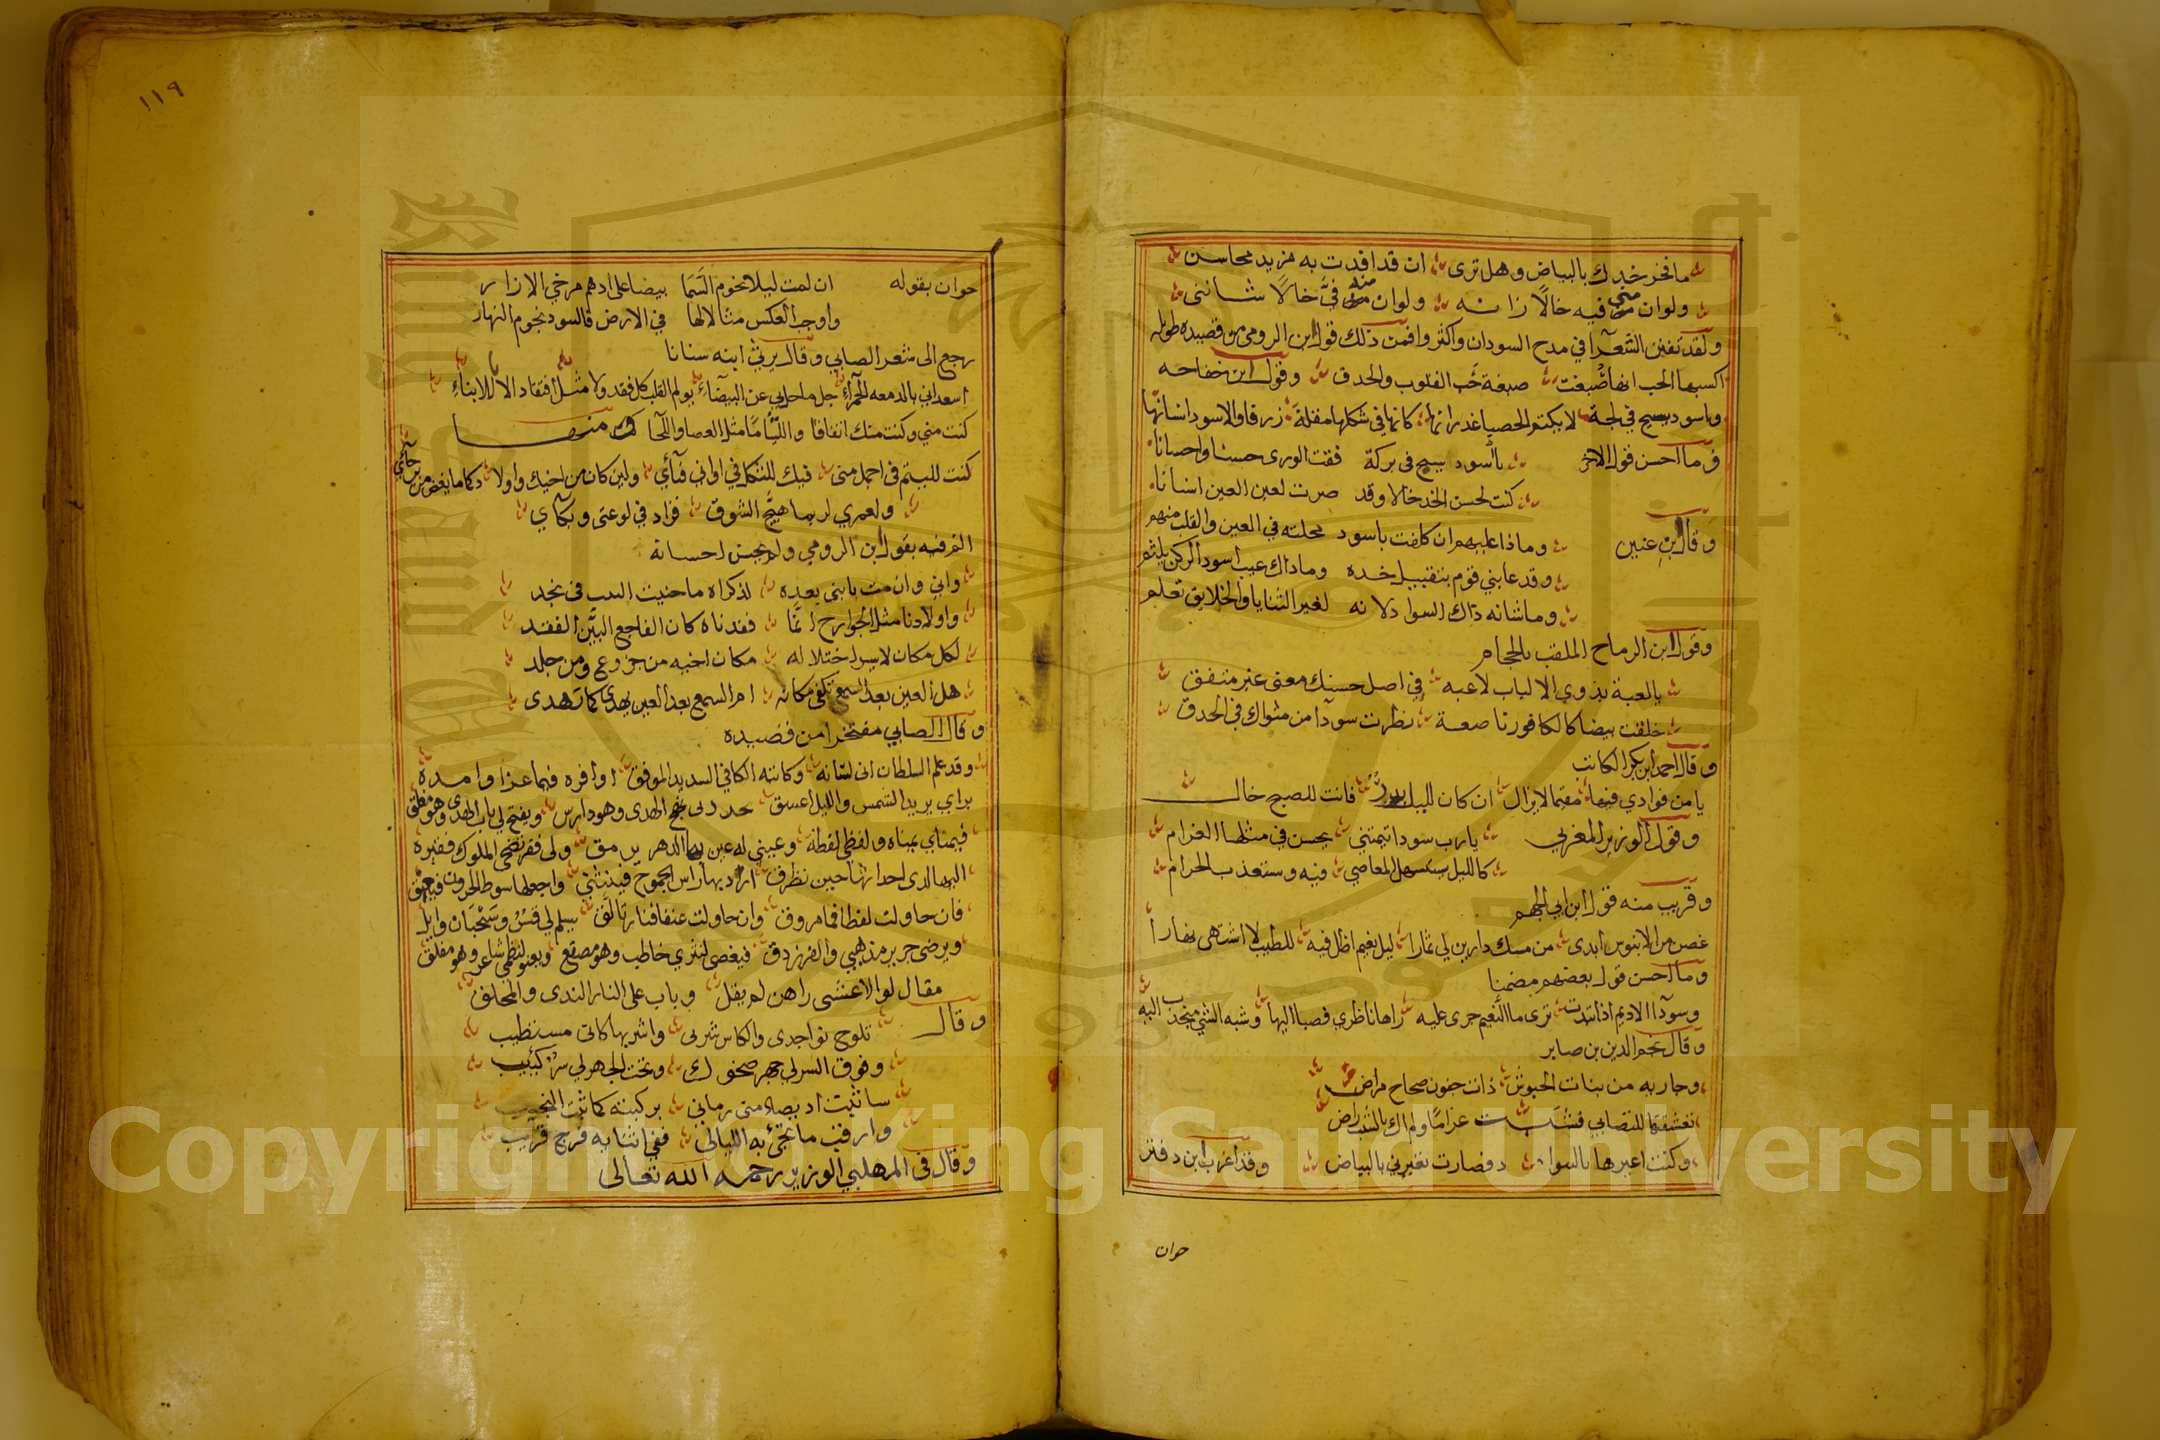 ما فخر خدك بالبياض وهل ترى ان قد افدت به مزيد محاسن
ولوان مني فيه خالا زانه ولوان منه في خالا شانني
ولقد تفنن الشعرآ في مدح السودان واكثروا فمن ذلك قول ابن الرومي من قصيده طويله
اكسبها الحب انها صبغت صبغة حب القلوب والحدق وقول ابن خفاجه
واسود يسبح في لجة لا يكتم الحصبا غدرانها كانها في شكلها مقلة زرقا والاسود انسانها
وما احسن قول الاخر يا اسود يسبح في بركة فقت الورى حسنا واحسانا
كنت لحسن الخد خالا وقد صرت لعين العين انسانا
وقال ابن عنين وماذا عليهم ان كلفت باسود محلته في العين والقلب منهم
وقد عابني قوم بتقبيل خده وماذاك عيب اسود الركن يلثم
وما شانه ذاك السواد لانه لغير الثنايا والخلايق تعلم
وقول ابن الرماح الملقب بالحجام
يا لعبة بذوي الالباب لاعبه في اصل حسنك معنى غير متفق
خلقت بيضا كالكافور ناصعة نظرت سودا من مثواك في الحدق
وقال احمد ابن بكر الكاتب
يا من فوادي فيها متيما لايزال ان كان لليل بدر فانت للصبح خال
وقول الوزير المغربي يارب سودا تيمتني يحسن في مثلها الغرام
كالليل يستسهل المعاصي فيه وستعذب الحرام
وقريب منه قول ابن ابي الجهم
غصن من الابنوس ابدى من مسك دارين لي ثمارا ليل نعيم اظل فيه للطيب لا اشتهي نهارا
وما احسن قول بعضهم مضمنا
وسودآ الاديم اذا تبدت ترى ما النعيم جرى عليه راها ناظري فصبا اليها وشبه الشي منجذب اليه
وقال نجم الدين بن صابر
وجاريه من بنات الحبوش ذات جفون صحاح مراض
تعشقتها للتصابي فشبت غراما ولم اك بالشيب راض
وكنت اعيرها بالسواد فصارت تعيرني بالبياض وقد اغرب ابن دفتر
حوان
١١٩
حوان بقوله ان لمت ليلا نجوم السما بيضا على ادهم مرخي الازار
واوجب العكس مثالا لها في الارض فالسود نجوم النهار
رجع الى شعر الصابي وقال يرثي ابنه سنانا
اسعداني بالدمعه الحمراء جل ما حل بي عن البيضاء يولم القلب كل فقد ولا مثل افتقاد الابا للابناء
كنت مني وكنت منك اتفاقا والتياما مثل العصا واللحا
كنت لليتم في اجمل مني فيك للثكل في اواني فنآي ولين كان من اخيك واولادكما ما يغض من برحآي
ولعمري لربما هيج الشوق فزاد في لوعتي وبكآي
الم فيه بقول ابن الرومي ولم يحسن احسانه
واني وان متعت بابني بعده لذكراه ما حنت النيب في نجد
واولادنا مثل الجوارح انما فقدناه كان الفاجع البين الفقد
لكل مكان لا يسد اختلاله مكان اخيه من جزوع ومن جلد
هل العين بعد السمع تكفي مكانه ام السمع بعد العين يهدي كما تهدى
وقال الصابي مفتخرا من قصيده
وقد علم السلطان اني لسانه وكاتبه الكافي السديد الموفق اوازره فيما عزا وامده
براي يريه الشمس والليل اغسق يجدد لي نهج الهدى وهو دارس ويفتح لي باب الهدى وهو مغلق
فيمناي يمناه ولفظي لفظه وعيني له عين بها الدهر يرمق ولي فقر تضحي الملوك فقيرة
اليها لدى احداثها حين تطرق ارد بها راس الجموح فينثني واجعلها سوط الحرون فيعنق
فان حاولت لطفا فما مروق وان حاولت عنفا فنار تالق يسلم لي قس وسحبان وايل
ويرضى جرير مذهبي والفرزدق فيغضي لنثري خاطب وهو مصقع ويعنو لنظمي شاعر وهو مفلق
مقال لو الاعشى راهن لم يقل وبات على النار الندى والمحلق
وقال تلوح نواجذي والكاس شربي واشربها كاني مستطيب
وفوق السر لي جهر ضحوك وتحت الجهر لي سر كئيب
ساثبت ان يصادمني زماني بركبته كما ثبت النجيب
وارقب ما تجئ به الليالي ففي اثنايه فرج قريب
وقال في المهلبي الوزير رحمه الله تعالى
Copyright © King Saud University
King Saud University
1957